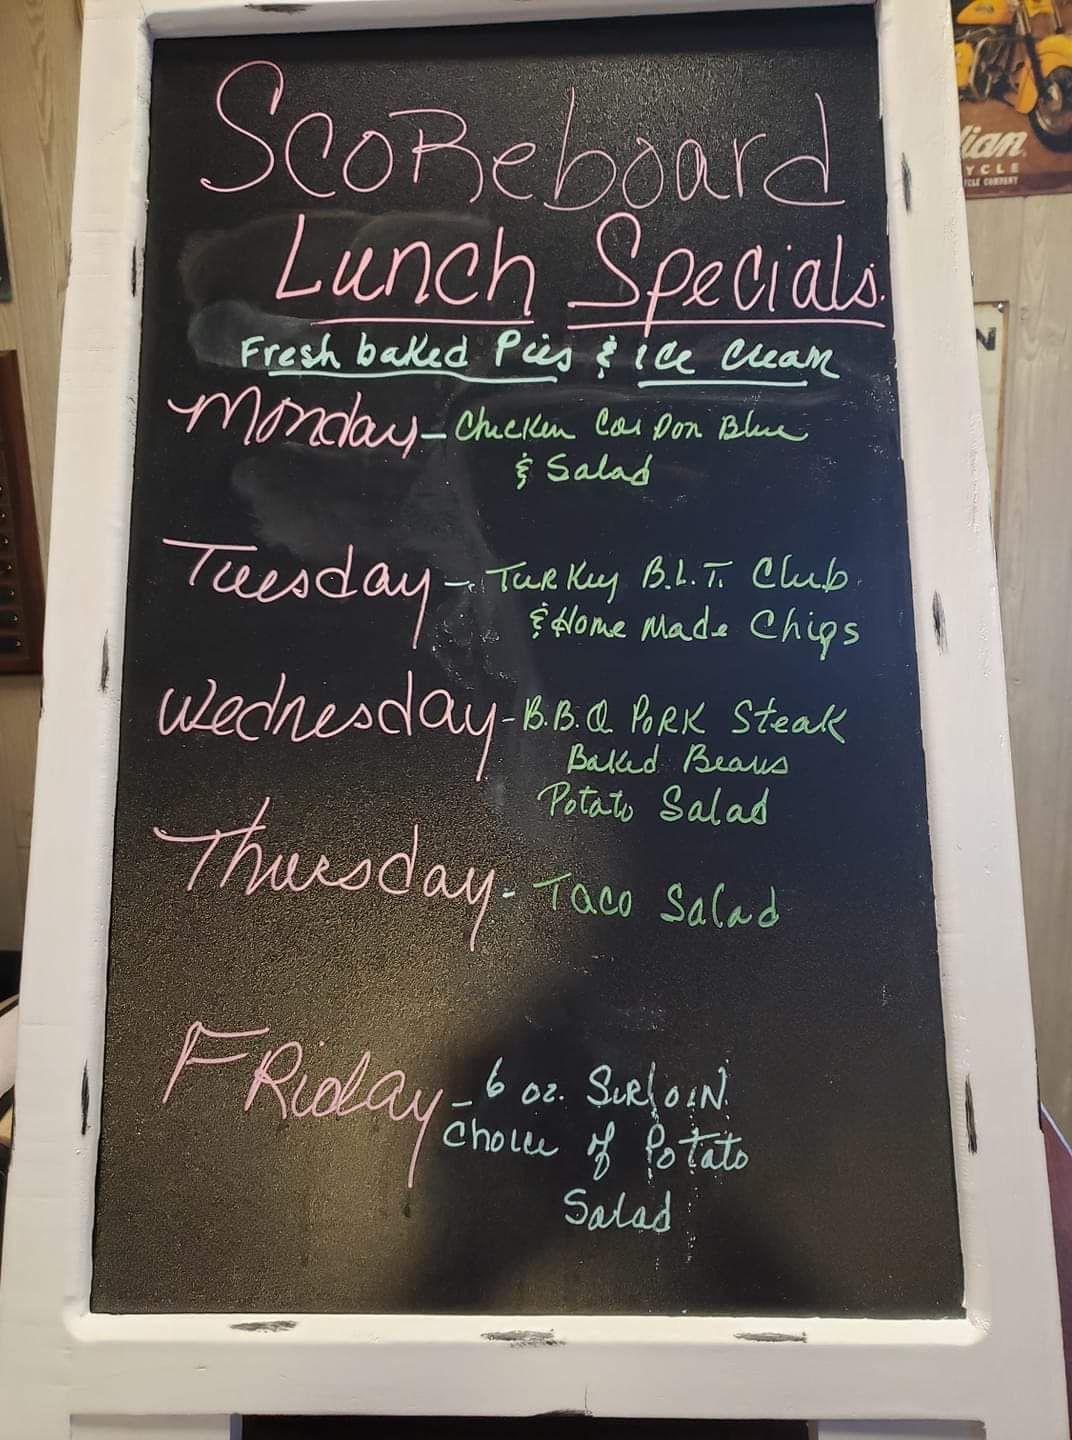 ScoReboard
Lunch Specials.
Fresh baked Pies & Ice Cream
Monday - Chicken Cor Don Blue
& Salad
Tuesday - Turkey B.L.T. Club
& Home Made Chips
Wednesday - B.B.Q PORK Steak
Baked Beans
Potato Salad
Thursday - Taco Salad
FRiday - 6 oz. SiRloiN
Choice of Potato
Salad
YCLE
CYCLE COMPANY
N